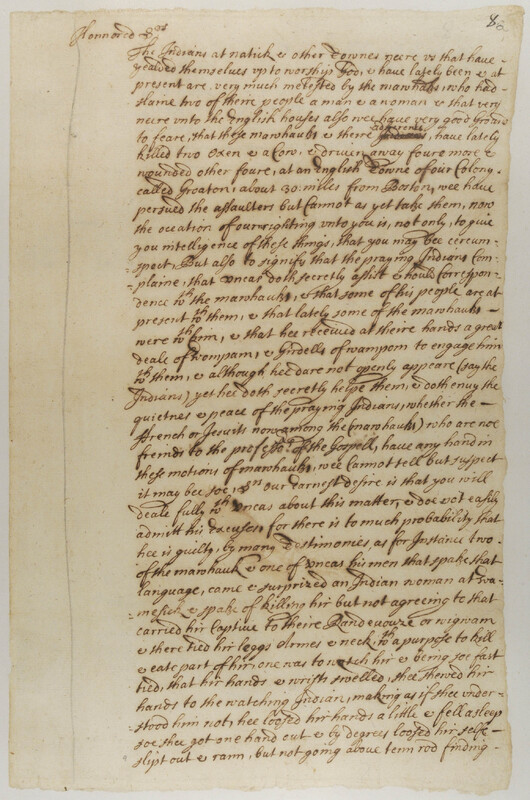 8
Honnored Srs
The Indians at natick & other Townes neere vs that have
yealded themselves vp to worship God, & have lately been & at
present are, very much molested by the mawhauks, who had
slaine two of there people a man & a woman & that very
neere vnto the English houses also wee have very good Ground
to feare, that these mawhauks & there adherents, have lately
killed two Oxen & a Cow, & driven away foure more &
wounded other foure, at an English Towne of our Colony
called Groaton, about 30: miles from Boston, wee have
persued the assaulters but Cannot as yet take them, now
the occation of our wrighting vnto you is, not only, to give
you intelligence of these things, that you may bee circum-
-spect, But also to signify that the praying Indians Com-
-plaine, that vncas doth secretly assist & hould Correspon-
dence wth the mawhauks, & that some of his people are at
present wth them, & that lately some of the mawhauks
were wth him, & that hee received at theire hands a great
deale of wompam, & Girdells of wampom to engage him
wth them, & although hee dare not openly appeare (say the
Indians) yet hee doth secretly helpe them, & doth envy the
quietnes & peace of the praying Indians, whether the
french or Jesuits now among the (mawhauks) who are noe
freinds to the of the Gospell, have any hand in
these motions of mawhauks, wee Cannot tell but suspect
it may bee soe, Srs our earnest desire is that you will
deale fully wth vncas about this matter, & doe not easily
admitt his excuses, for there is to much probability that
hee is guilty, by many Testimonies, as for Instance two
of the mawhauk & one of vncas his men that spake that
language, came & surprized an Indian woman at wa-
-mesick & spake of killing hir but not agreeing to that
carried hir Captive to theire Randevouze or wigwam
& there tied hir leggs Armes & neck, wth a purpose to kill
& eate part of hir, one was to watch hir & being soe fast
tied, that hir hands & wrists swelled, shee shewed hir
hands to the watching Indian, making as if shee vnder-
stood him not, hee loosed hir hands a little & fell asleep
soe shee got one hand out & by degrees loosed hir selfe
slipt out & rann, but not going above tenn rod finding